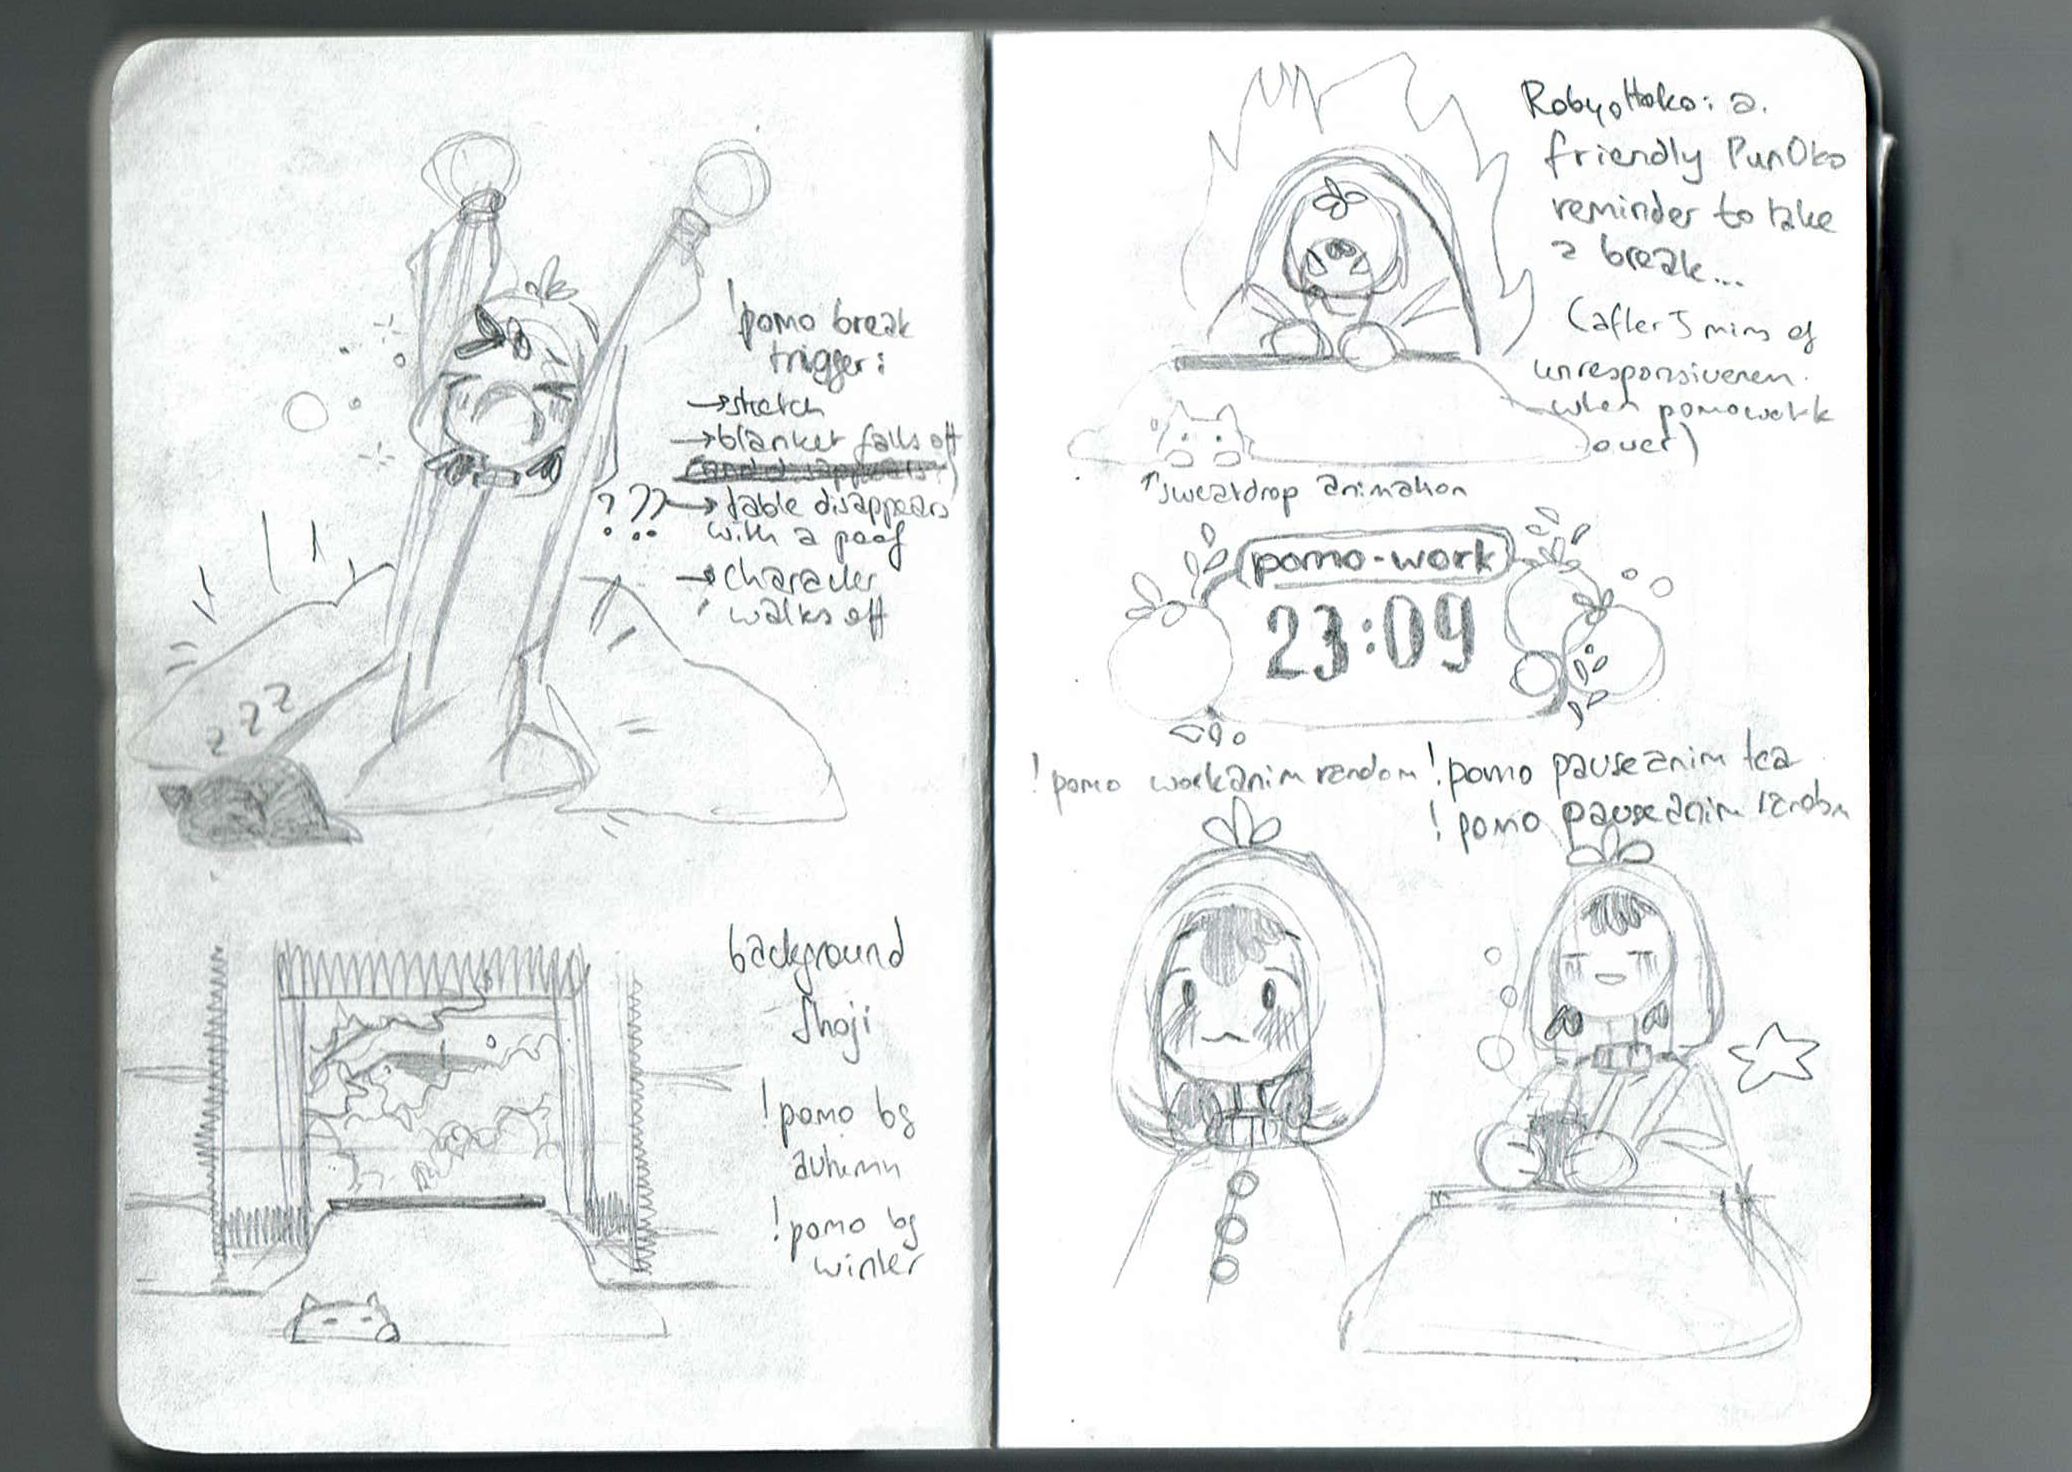 !pomo break
trigger:
→stretch
→blanket falls off
(and disappears!)
? ?? →table disappears
with a poof
→character
walks off
z z z
background
shoji
!pomo bg
autumn
!pomo bg
winter
a
friendly PunOko
reminder to take
a break...
(after 5 mins of
unresponsiveness
when pomowork
over)
↑sweatdrop animation
pomo-work
23:09
!pomo workanim random
!pomo pauseanim tea
!pomo pauseanim